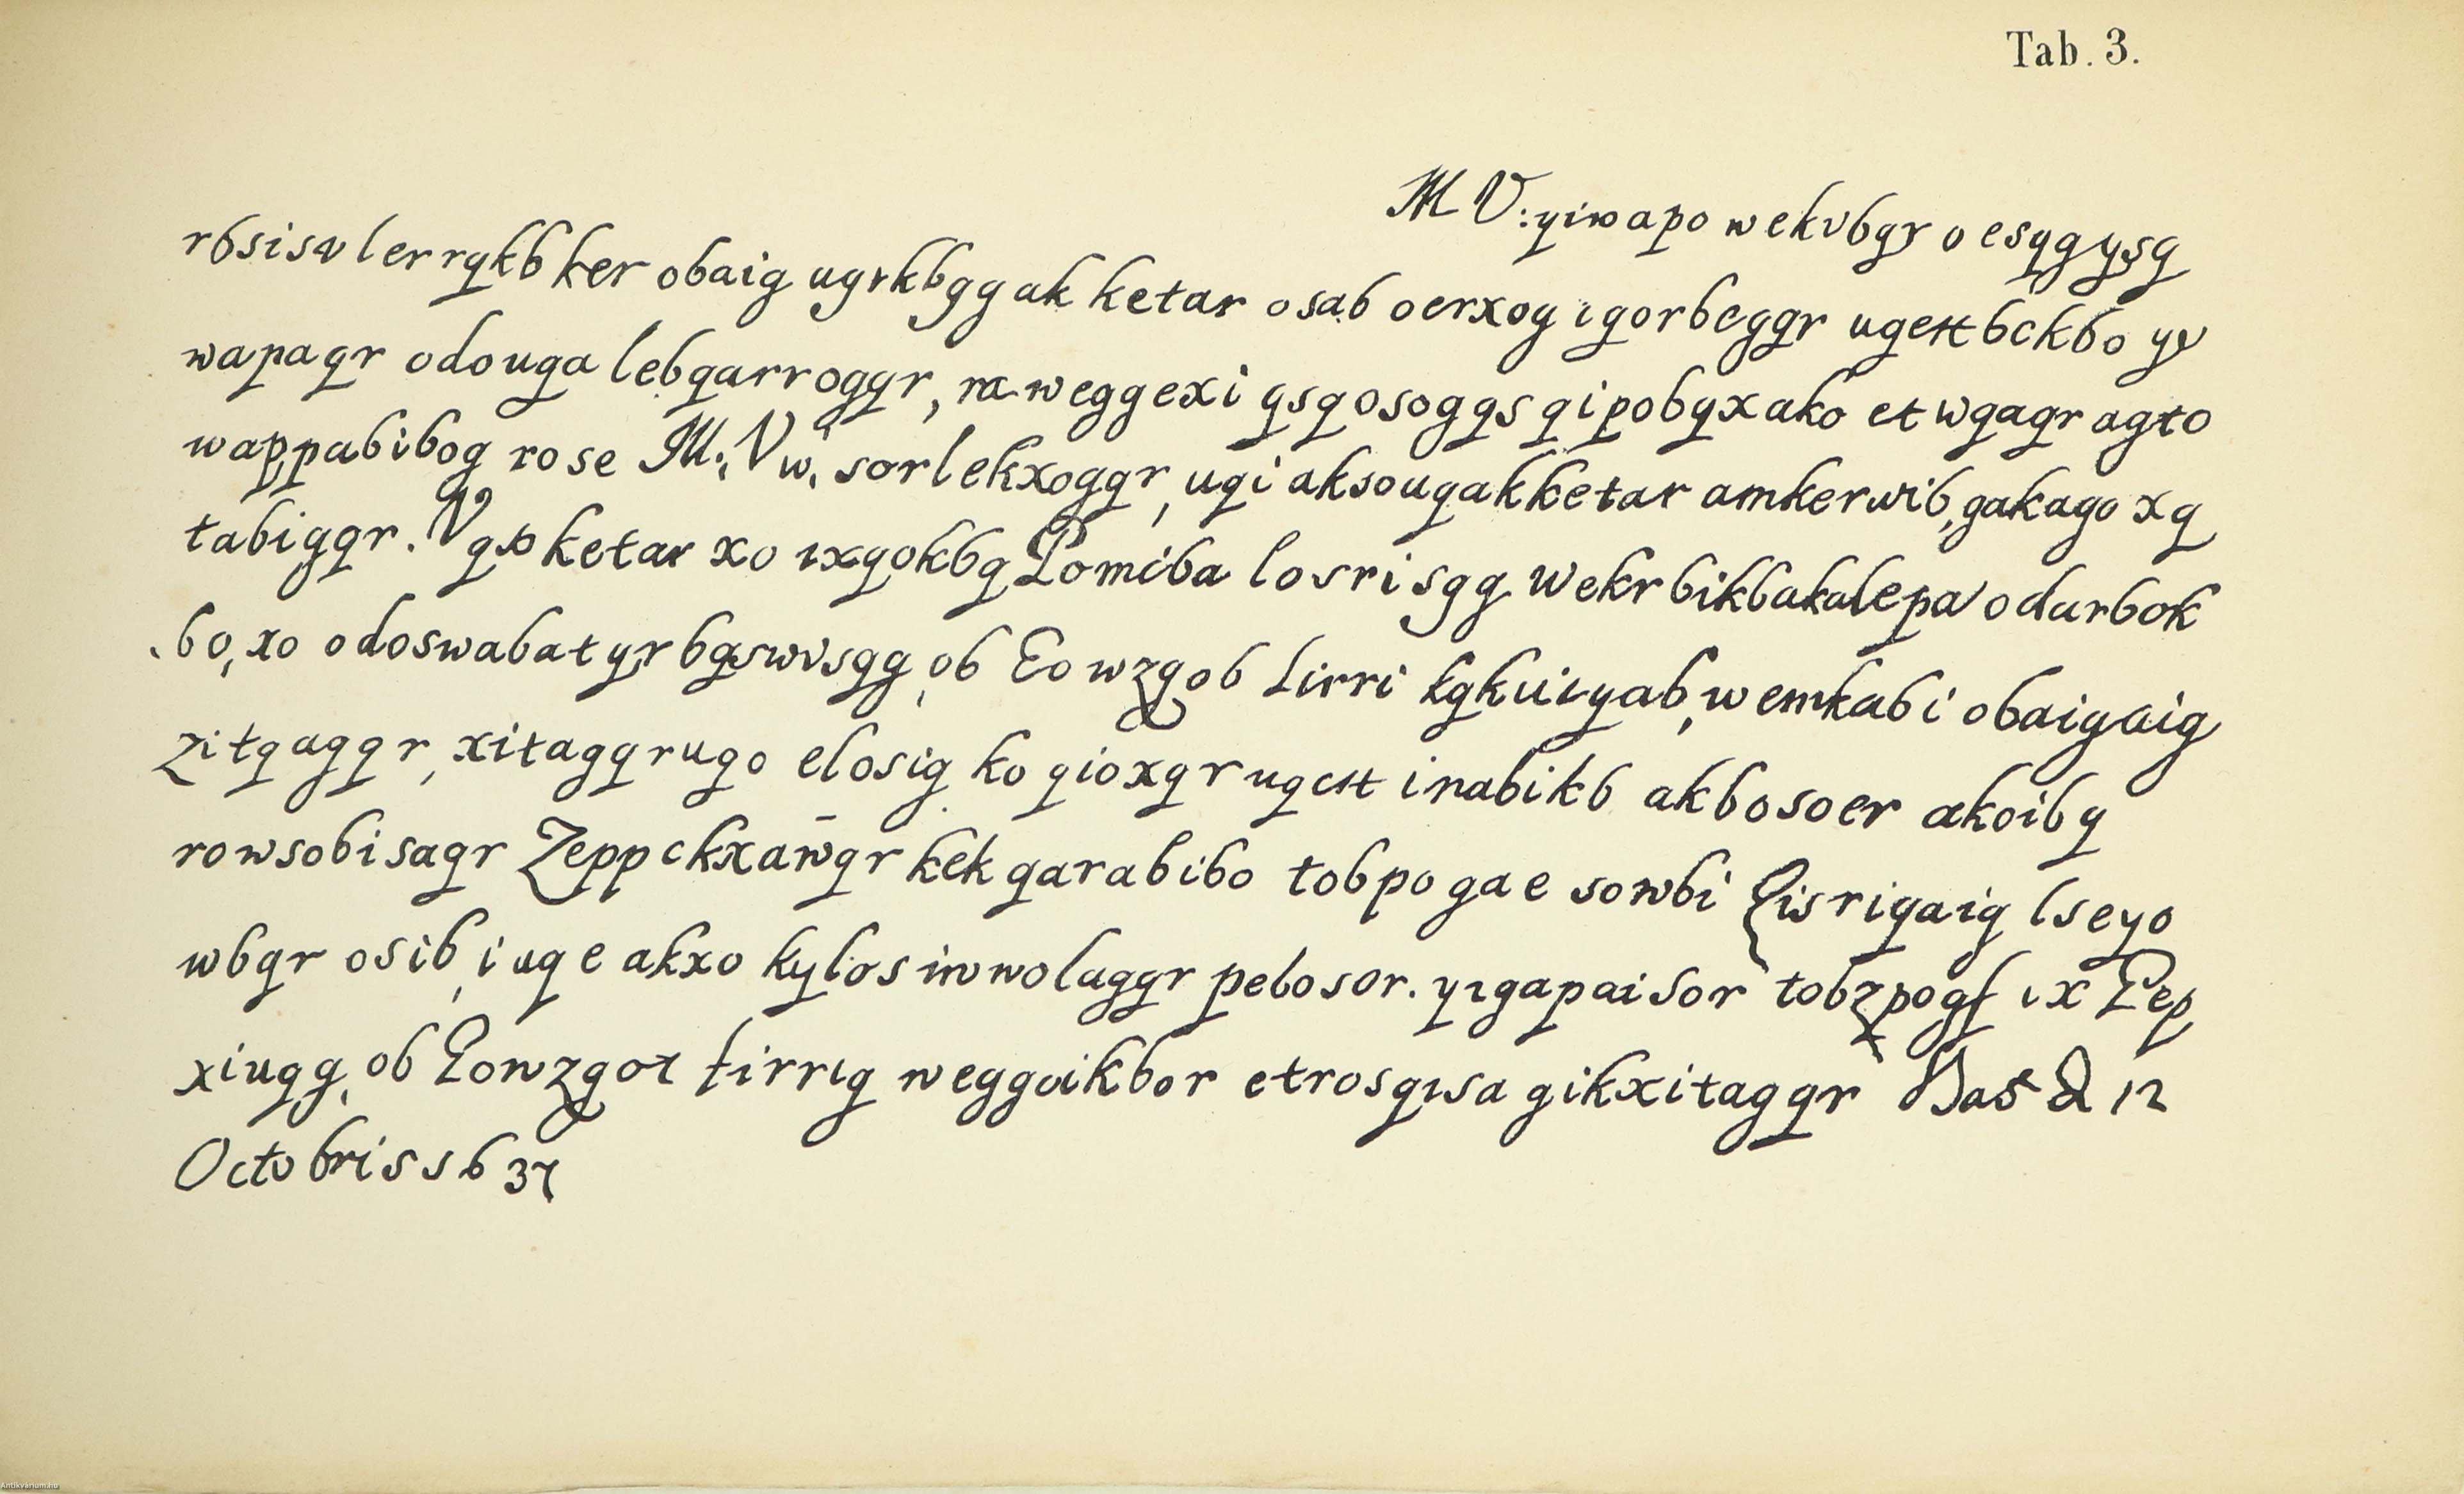 Tab. 3.
M V: yiwapo wekvbgr o esqgysq
rbsisv lerrqkb ker obaig ugrkbgg ak ketar osab oerxog igorbeggr ugett bckbo ye
wapaqr odouga lebqarroggr, ra weggexi qsqosoggs qipobqxako et wqaqr agto
wappabibog rose M: V w, sorlekxoggr, uqi aksouqakketar amkerwib, gakago xq
tabiggr. V ketar xo ixqokbq Lomiba losrisgg wekrbikbakalepa odarbok
bo, xo odoswabatyr bgswvsgg, ob Eowzgob Lirri kgkuiyab, wemkabi obaigaig
zitqaqqr, xitaggrugo elosig ko qioxqr ugett inabikb akbosoer akoibq
rowsobisaqr Zeppckxawqr kek qarabibo tobpo gae sowbi Lisrigaig lseyo
wbgr osib, i uq e akxo kylos inwolaggr pebosor. yigapaisor tobzpogs ix Lep
xiuqg, ob Eowzgor firrig weggaikbor etrosqisa gikxitaggr Das d 12
Octobris sb 37
Antikvarium.hu